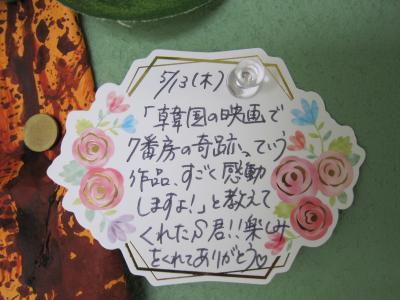 5/13(木)
「韓国の映画で
7番房の奇跡っていう
作品、すごく感動
しますよ!」と教えて
くれたS君!!楽しみ
をくれてありがとう♡